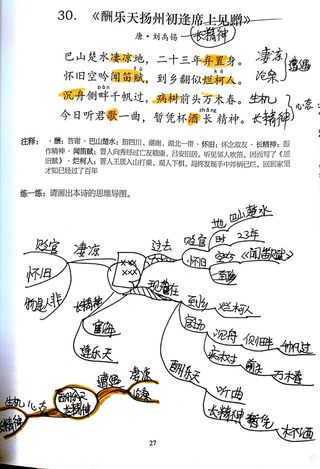 30. 《酬乐天扬州初逢席上见赠》
长精神
唐·刘禹锡
巴山楚水凄凉地，二十三年弃置身。
凄凉
沧桑
遭遇
怀旧空吟闻笛赋，到乡翻似烂柯人。
沉舟侧畔千帆过，病树前头万木春。
生机
心态
今日听君歌一曲，暂凭杯酒长精神。
长精神
注释： ·酬：答谢 ·巴山楚水：指四川、湖南、湖北一带 ·怀旧：怀念故友 ·长精神：振
作精神 ·闻笛赋：晋人向秀经过亡友嵇康、吕安旧居，听见邻人吹笛，因而写了《思
旧赋》 ·烂柯人：晋人王质入山打柴，观人下棋，局终发现手中斧柄已烂，回到家里
才知已经过了百年
练一练：请画出本诗的思维导图。
贬官
凄凉
怀旧
物是人非
长精神
官场
逢乐天
过去
贬官
地
巴山楚水
时
23年
怀旧
《闻笛赋》
到乡
现在
到乡
烂柯人
官场
沉舟
侧畔
千帆过
病树
前头
万木春
酬乐天
听曲
长精神
暂凭
杯酒
生机
心态
长精神
酬乐天
长精神
遭遇
凄凉
沧桑
27